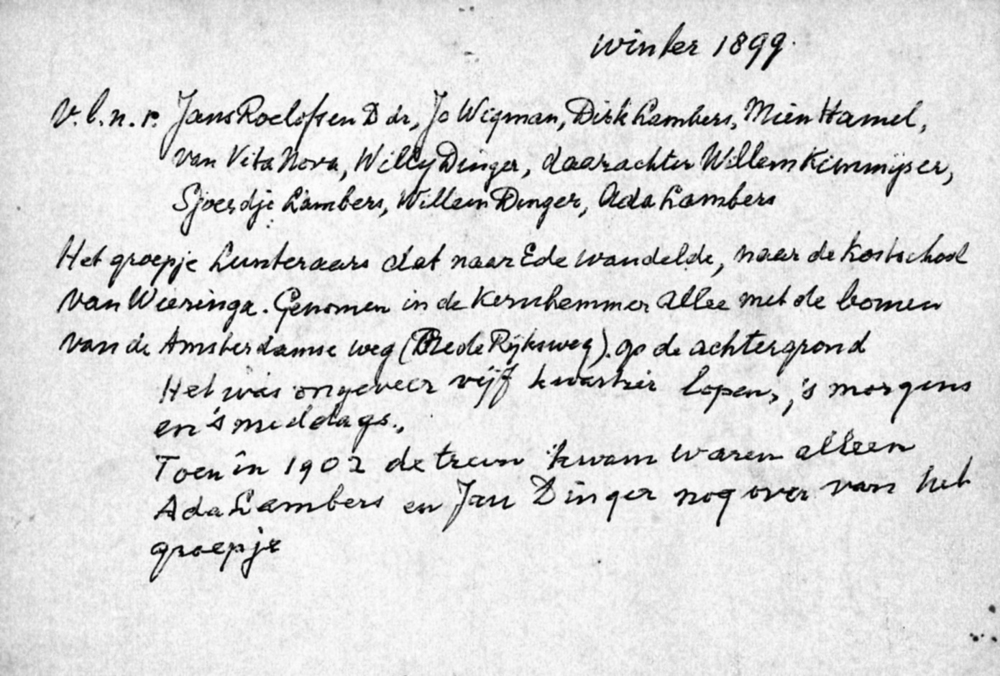 winter 1899.
v.l.n.r. Jans Roelofsen Ddr, Jo Wigman, Dirk Lambers, Mien Hamel,
van Vita Nova, Willy Dinger, daarachter Willem Kimmijser,
Sjoerdje Lambers, Willem Dinger, Ada Lambers
Het groepje Lunteraars dat naar Ede wandelde, naar de kostschool
van Wieringa. Genomen in de Kernhemmer Allee met de bomen
van de Amsterdamse weg (Rijksweg). op de achtergrond
Het was ongeveer vijf kwartier lopen, 's morgens
en 's middags.
Toen in 1902 de trein kwam waren alleen
Ada Lambers en Jan Dinger nog over van het
groepje